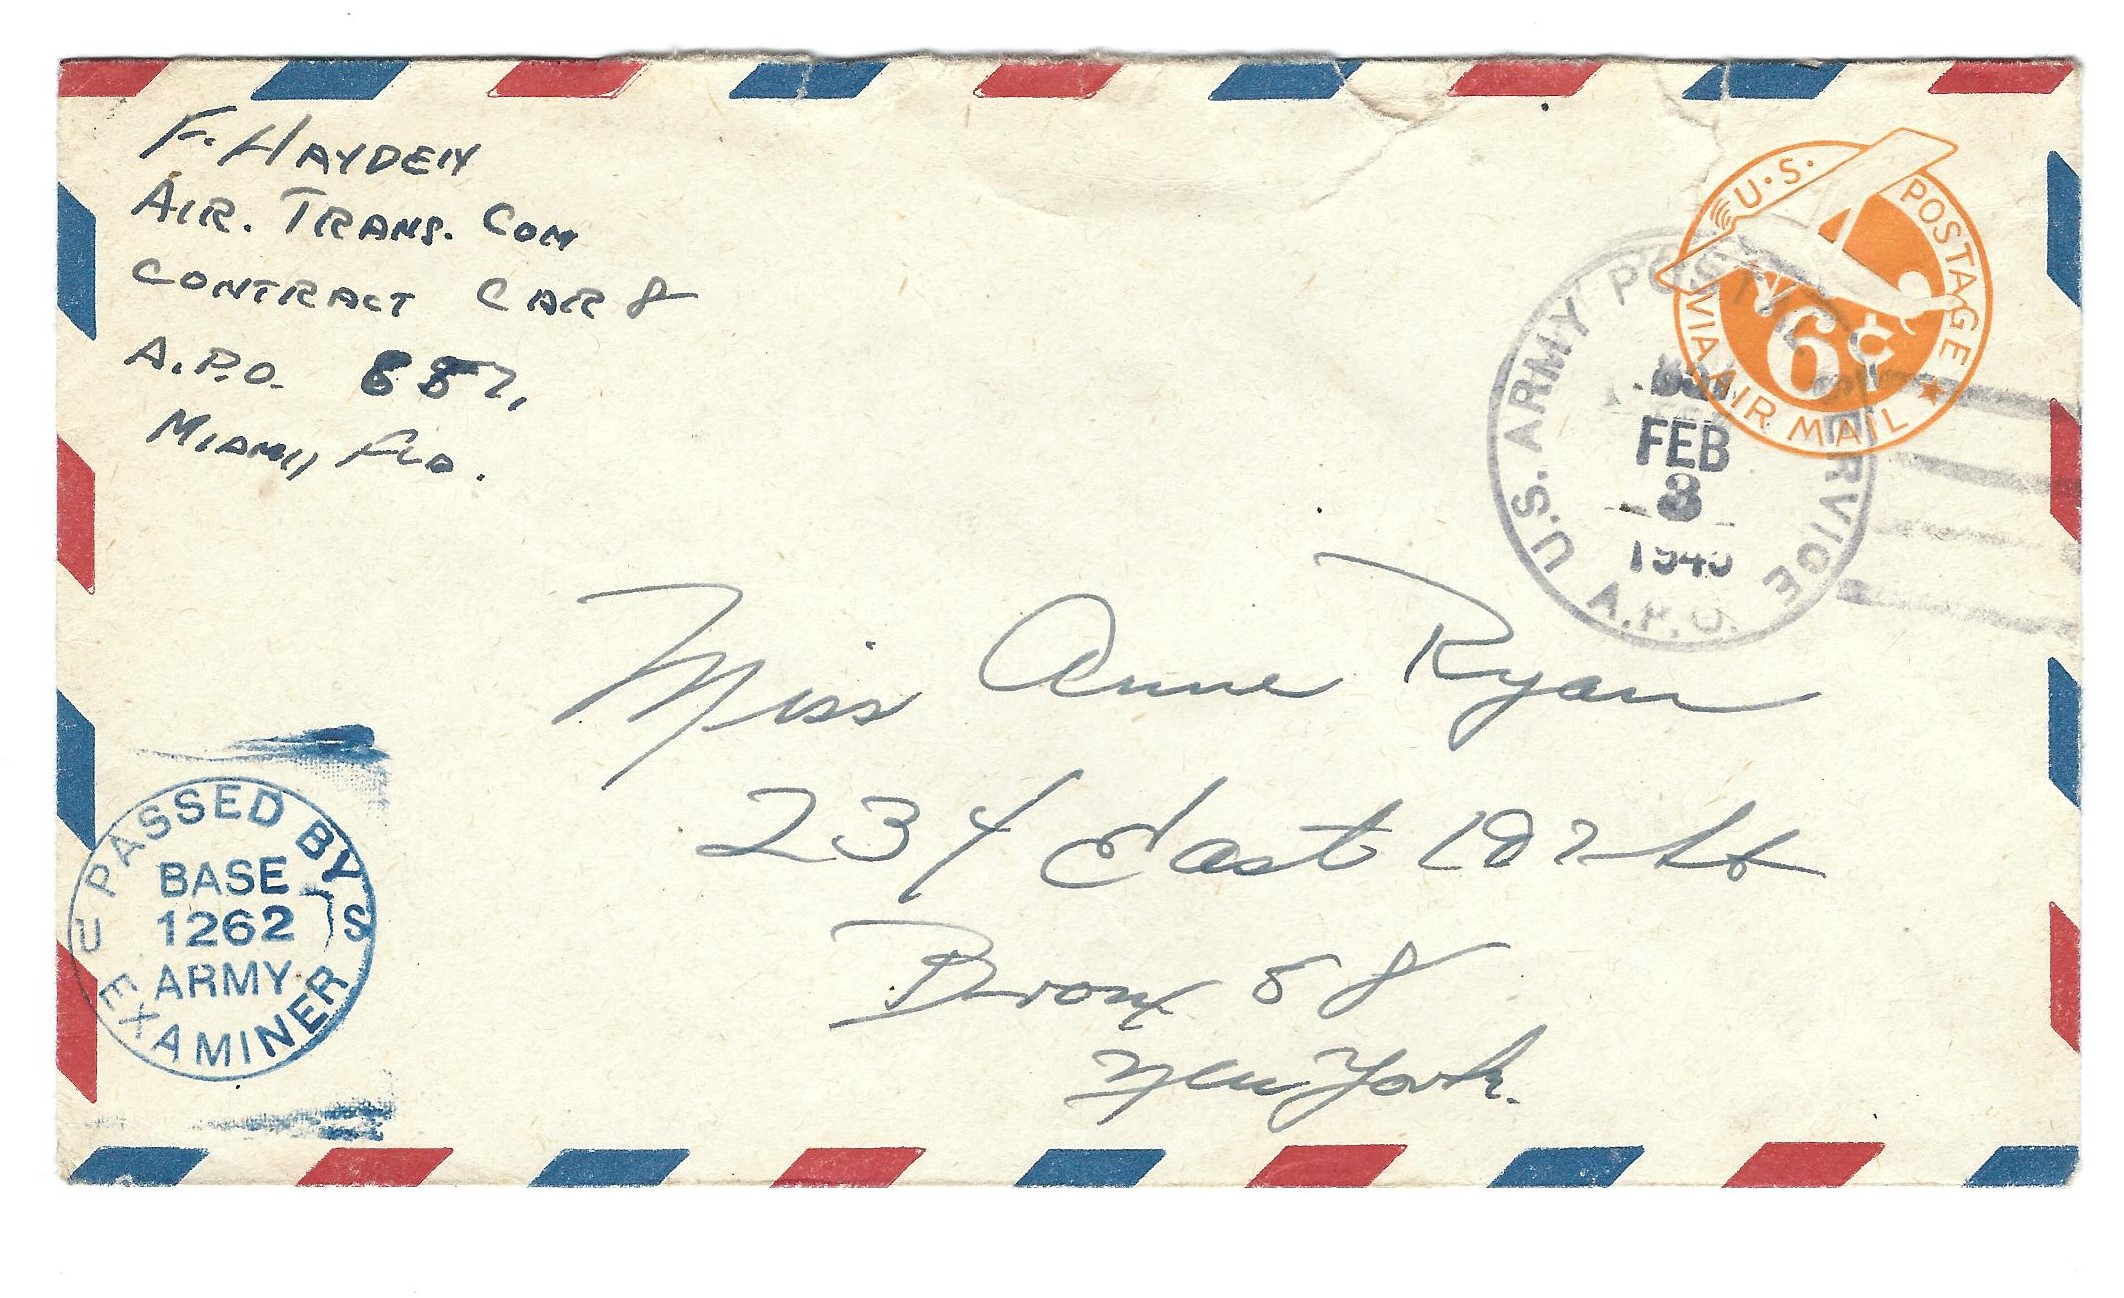 F. HAYDEN
AIR. TRANS. COM
CONTRACT CAR8
A.P.O. 887,
MIAMI, FLA.
U.S. POSTAGE
6¢
VIA AIR MAIL
U.S. ARMY POSTAL SERVICE
FEB
3
A.P.O.
Miss Anne Ryan
234 East 187 St
Bronx 58
New York.
PASSED BY
BASE
U 1262 S
ARMY
EXAMINER